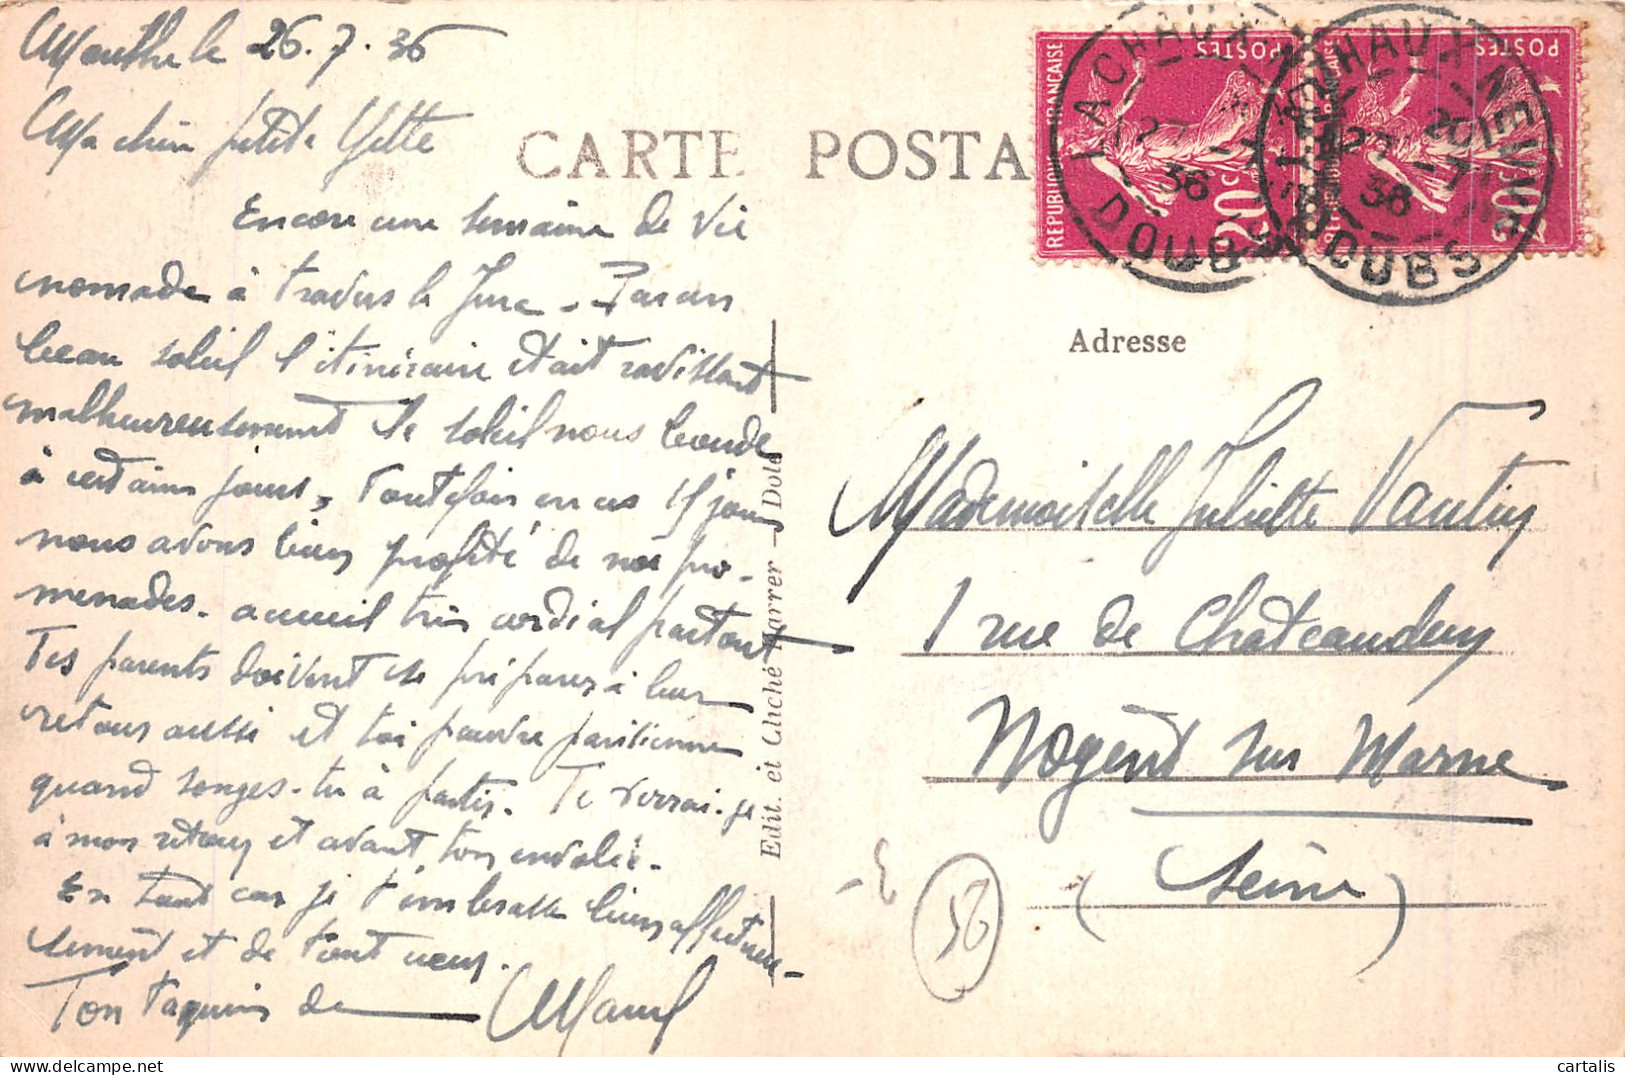 Mouthe le 26.7.36
Ma chère petite Yette
CARTE POSTA
Encore une semaine de vie
nomade à travers le Jura - Par un
beau soleil l'itinéraire était ravissant
malheureusement le soleil nous boude
à certains jours, Toutefois en ces 15 jours
nous avons bien profité de nos pro-
menades. accueil très cordial partout
Tes parents doivent se préparer à leur
retour aussi et toi pauvre parisienne
quand songes-tu à partir. Te verrai-je
à mon retour et avant ton envolée.
En tout cas je t'embrasse bien affectueu-
sement et de tout cœur.
Ton taquin de Marcel
Edit. et Cliché Karrer - Dole
REPUBLIQUE FRANÇAISE
POSTES
20 c.
POSTES
20
LA CHAUX-NEUVE
27 -7 36
DOUBS
CHAUX-NEUVE
20
27 -7 36
DOUBS
Adresse
Mademoiselle Juliette Vautier
1 rue de Chateaudun
Nogent sur Marne
(Seine)
52
cartalis